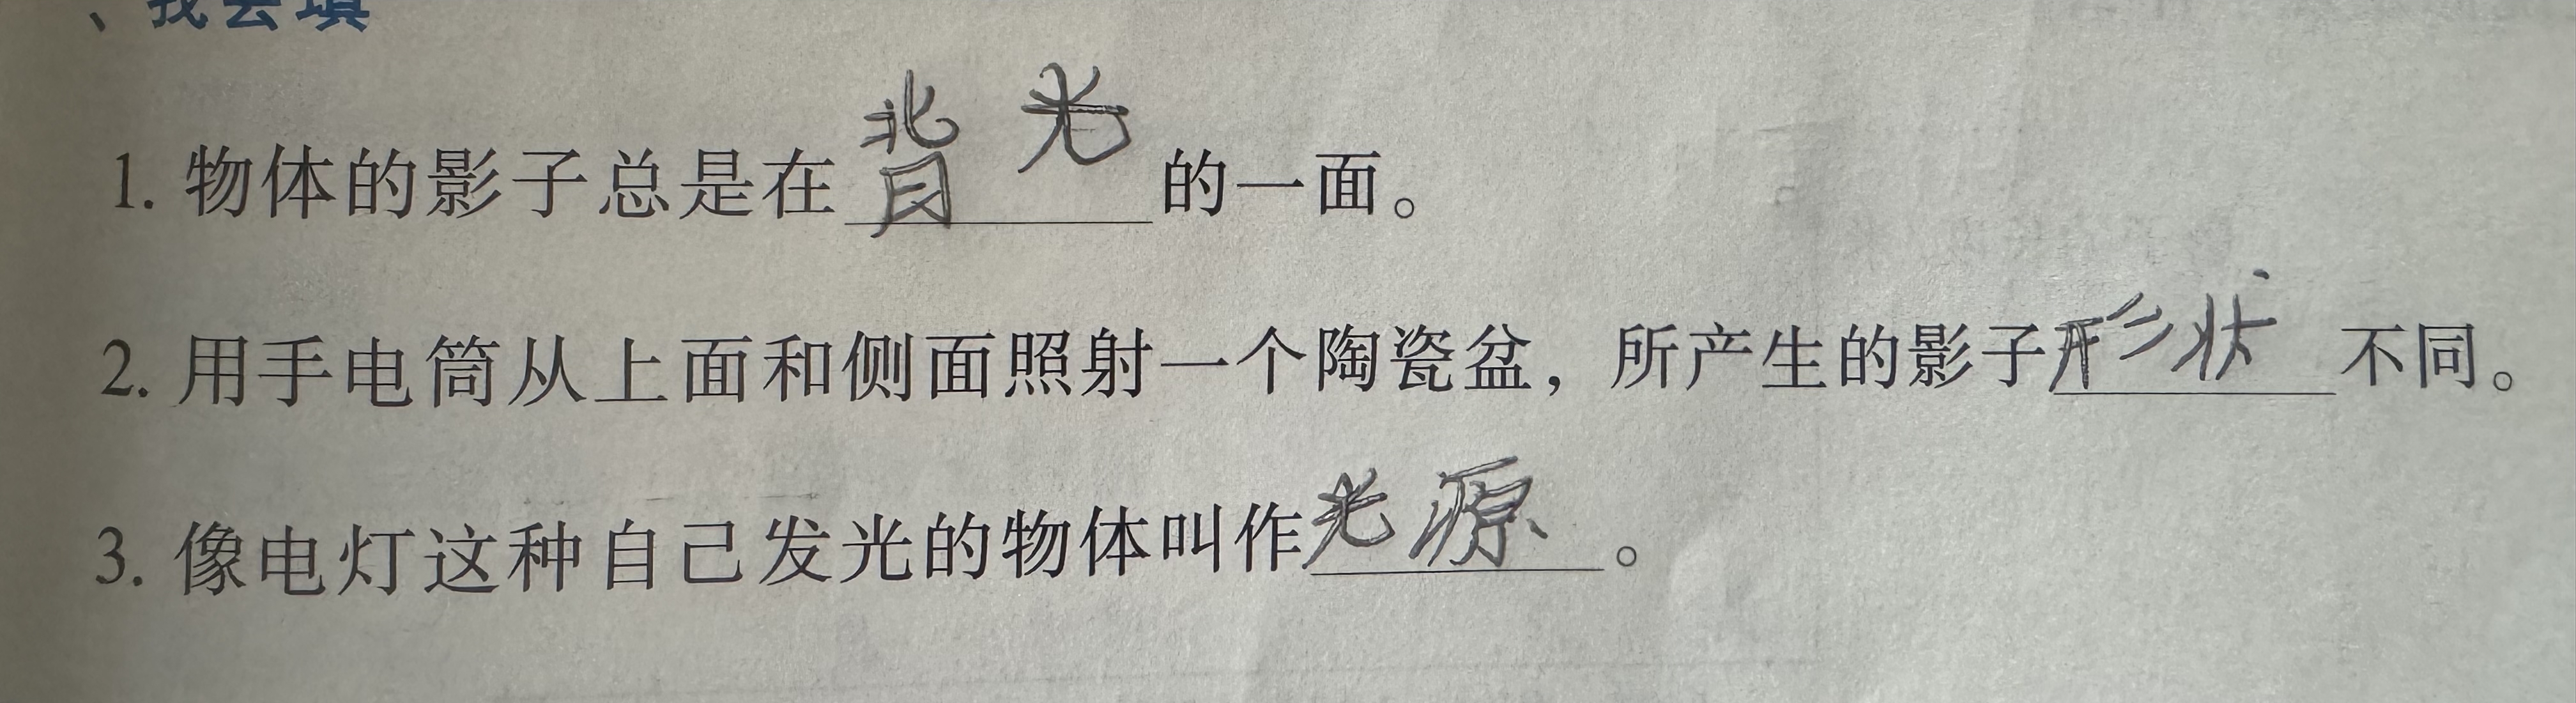 、我会填
1. 物体的影子总是在背光的一面。
2. 用手电筒从上面和侧面照射一个陶瓷盆，所产生的影子形状不同。
3. 像电灯这种自己发光的物体叫作光源。